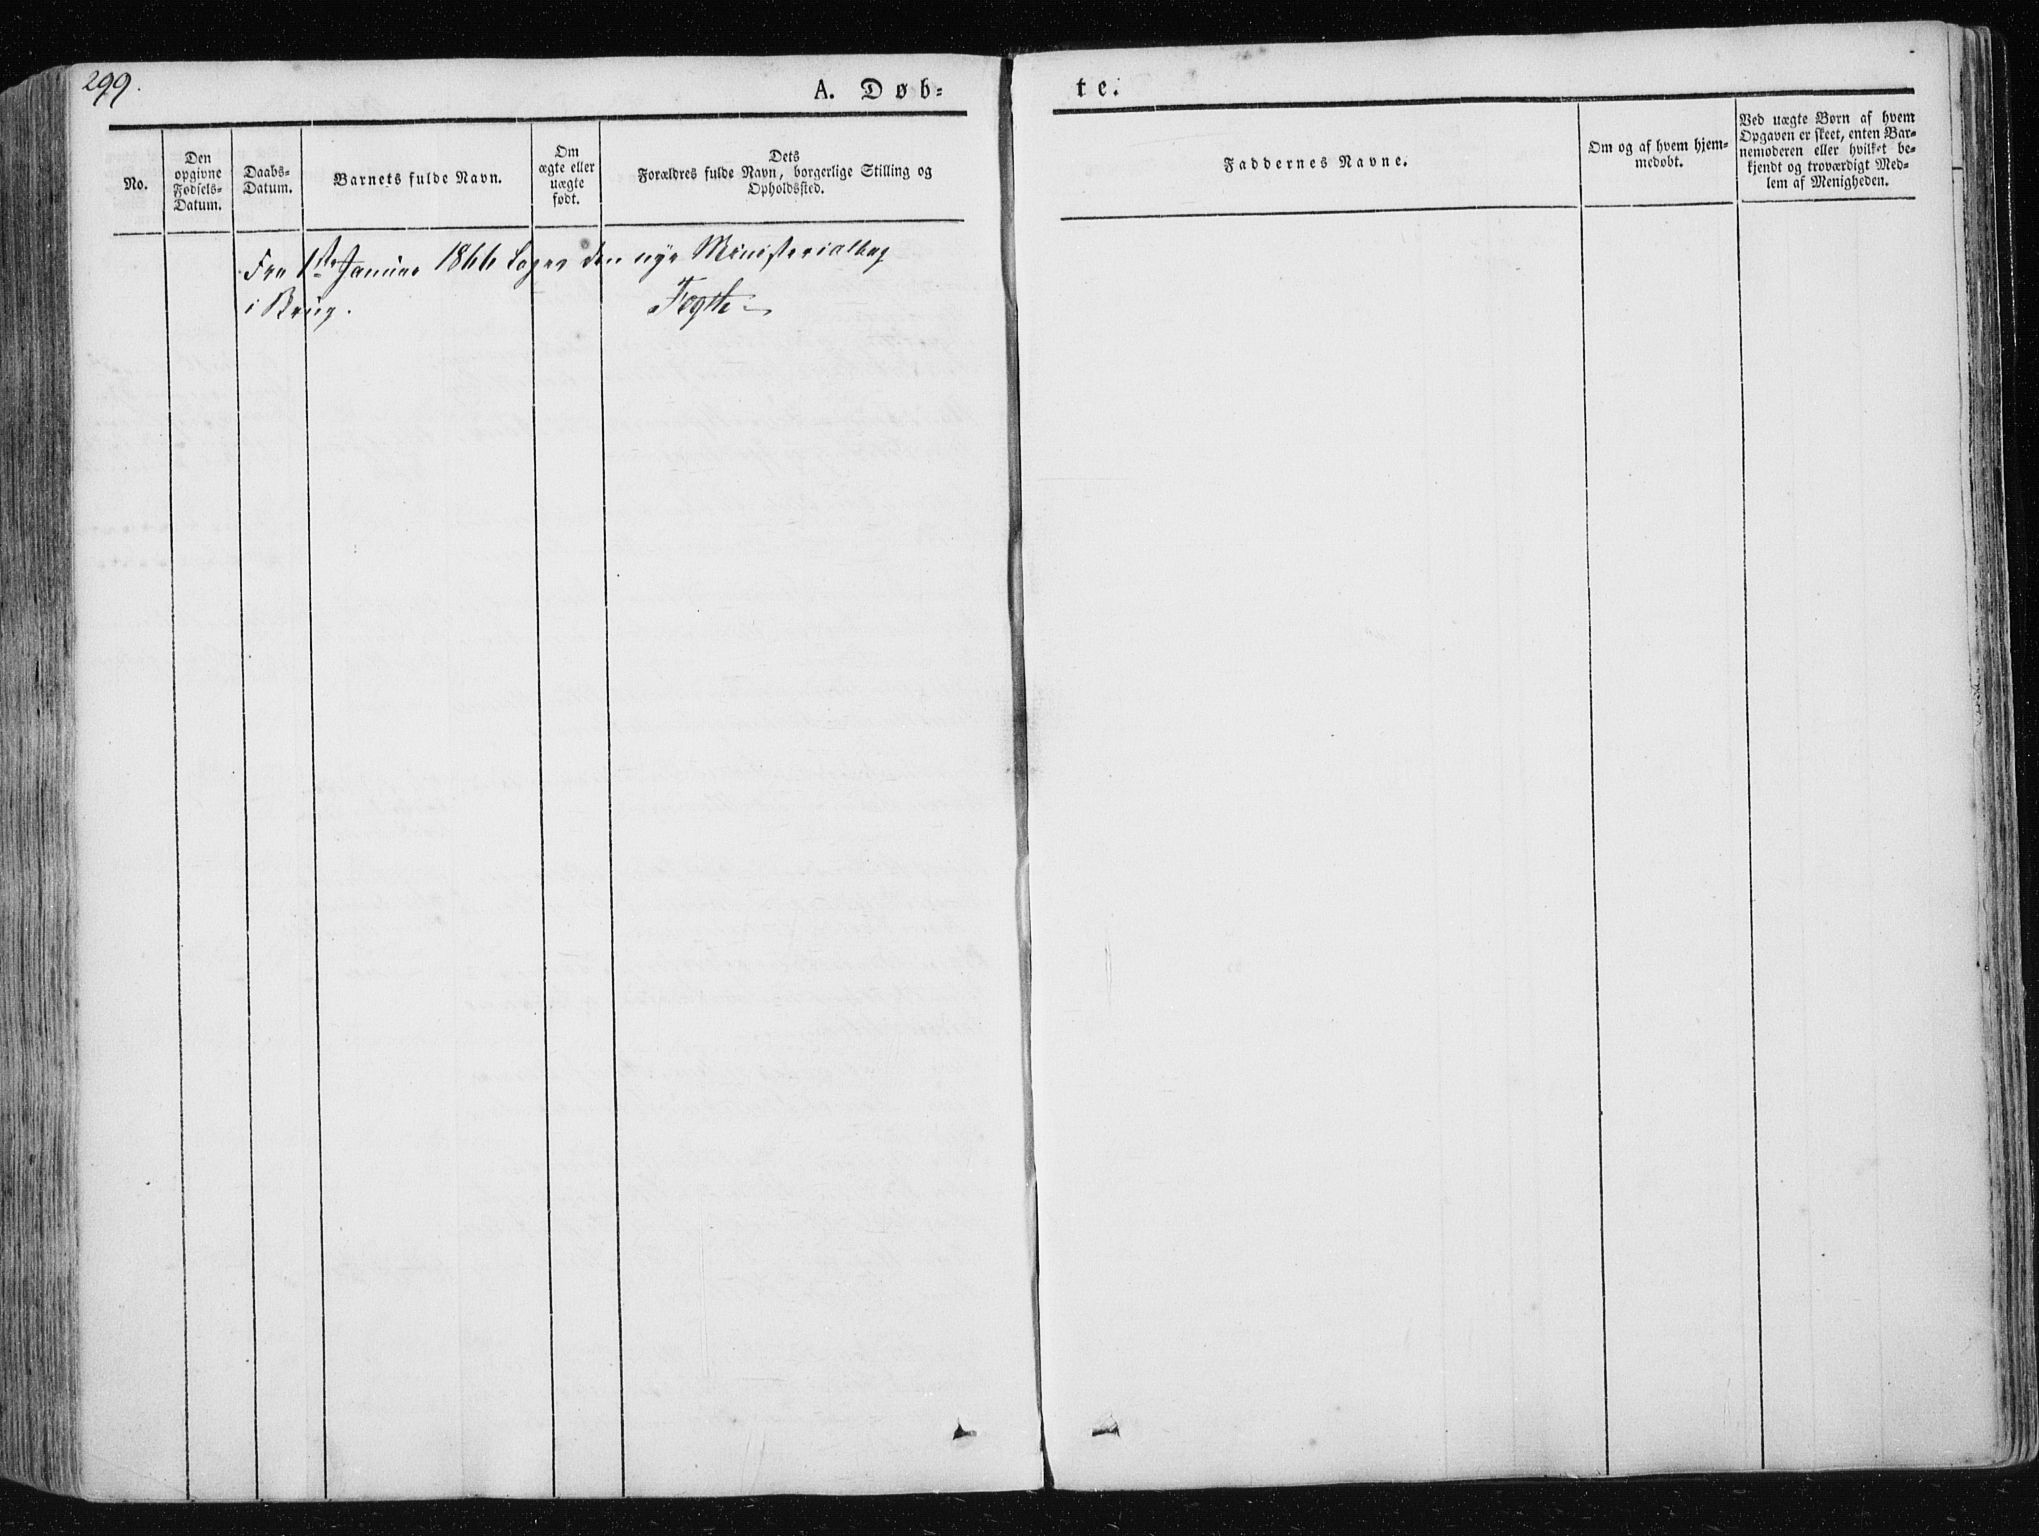 299.
A. Døb- te.
No.
Den
opgivne
Fødsels-
Datum.
Daabs-
Datum.
Barnets fulde Navn.
Om
ægte eller
uægte
født.
Dets
Forældres fulde Navn, borgerlige Stilling og
Opholdssted.
Faddernes Navne.
Om og af hvem hjem-
medøbt.
Ved uægte Børn af hvem
Opgaven er skeet, enten Bar-
nemoderen eller hvilket be-
kjendt og troværdigt Med-
lem af Menigheden.
Fra 1ste Januar 1866 tages den nye Ministerialbog
i Brug.